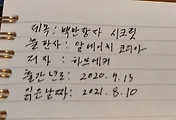 제목: 백만장자 시크릿
출판사: 알에이치 코리아
저자: 하브에커
출간년도: 2020. 9. 13
읽은날짜: 2021. 8. 10